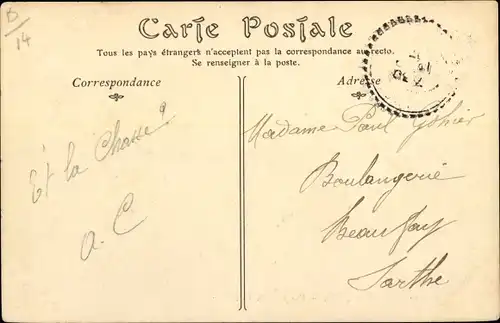 D
14
Carte Postale
Tous les pays étrangers n'acceptent pas la correspondance au recto.
Se renseigner à la poste.
Correspondance
Adresse
Et la Chasse?
A. C
Madame Paul
Boulangerie
Beaufay
Sarthe